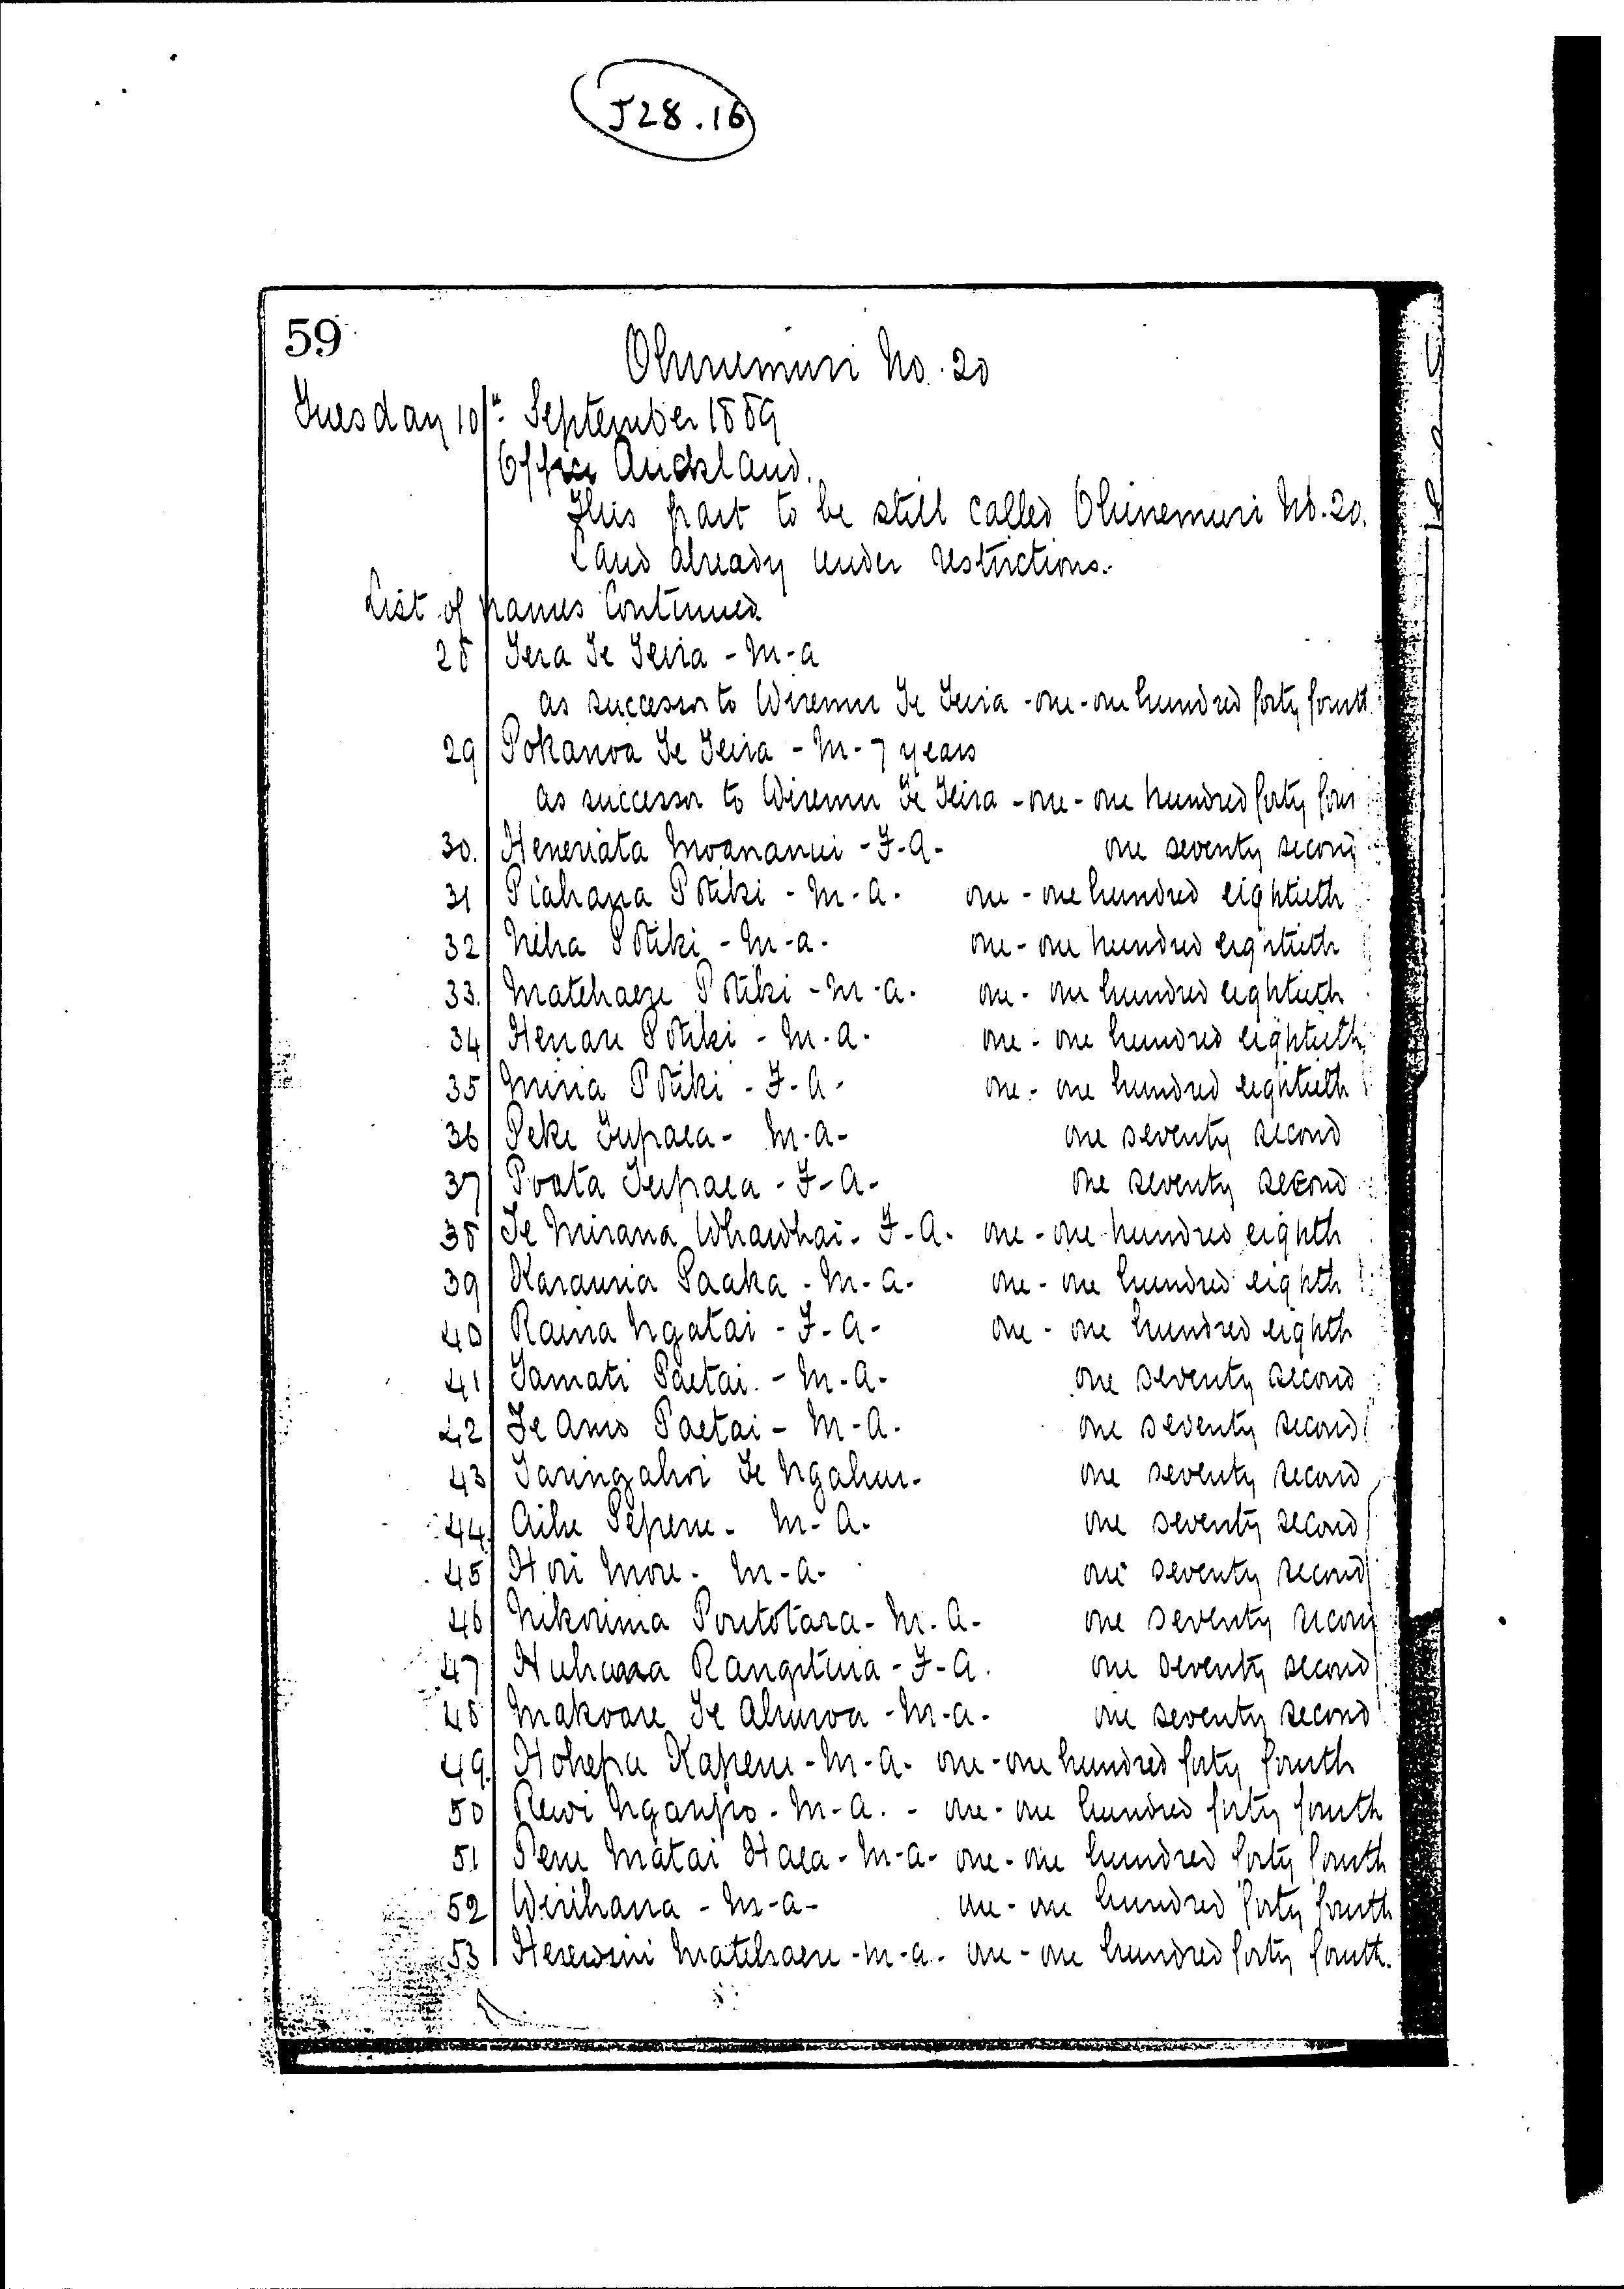 J28.16
59
Ohinemuri No. 20
Tuesday 10th September 1889
Office Auckland.
This part to be still called Ohinemuri No. 20.
Land already under restrictions.
List of names Continued
28 Tera Te Teira - M - A
as successor to Wiremu Te Teira - one - one hundred forty fourth
29 Pokanoa Te Teira - M - 7 years
as successor to Wiremu Te Teira - one - one hundred forty four
30. Heneriata Moananui - F - A - one seventy second
31 Piahana Potiki - M - A - one - one hundred eightieth
32 Niha Potiki - M - A - one - one hundred eightieth
33. Matehaere Potiki - M - A - one - one hundred eightieth
34 Henare Potiki - M - A - one - one hundred eightieth
35 Miria Potiki - F - A - one - one hundred eightieth
36 Peke Tupaea - M - A - one seventy second
37 Poata Tupaea - F - A - one seventy second
38 Te Mirana Whawhai - F - A - one - one hundred eighth
39 Karauria Paaka - M - A - one - one hundred eighth
40 Raina Ngatai - F - A - one - one hundred eighth
41 Tamati Paetai - M - A - one seventy second
42 Te Amo Paetai - M - A - one seventy second
43 Taringahoi Te Ngahue - one seventy second
44. Aihe Pepene - M - A - one seventy second
45 Hori More - M - A - one seventy second
46 Nikorima Poutotara - M - A - one seventy second
47 Huhana Rangituia - F - A. one seventy second
48 Makoare Te Ahuroa - M - A - one seventy second
49. Hohepa Kapene - M - A - one - one hundred forty fourth
50 Rewi Nganpo - M - A - one - one hundred forty fourth
51 Pene Matai Haea - M - A - one - one hundred forty fourth
52 Wirihana - M - A - one - one hundred forty fourth
53 Herewini Matehaere - M - A - one - one hundred forty fourth.